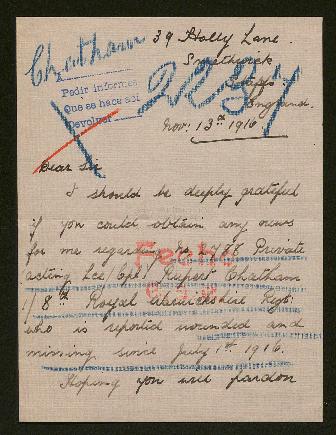 Chatham
39 Holly Lane.
Smethwick
Staffs
England.
Pedir informes
Que se hace así
Devolver
Nov: 13th 1916
Dear Sir
I should be deeply grateful
if you could obtain any news
for me regarding No. Private
acting Lce/Cpl Rupert Chatham
1/8th Royal Warwickshire Regt.
who is reported wounded and
missing since July 1st 1916.
Hoping you will pardon